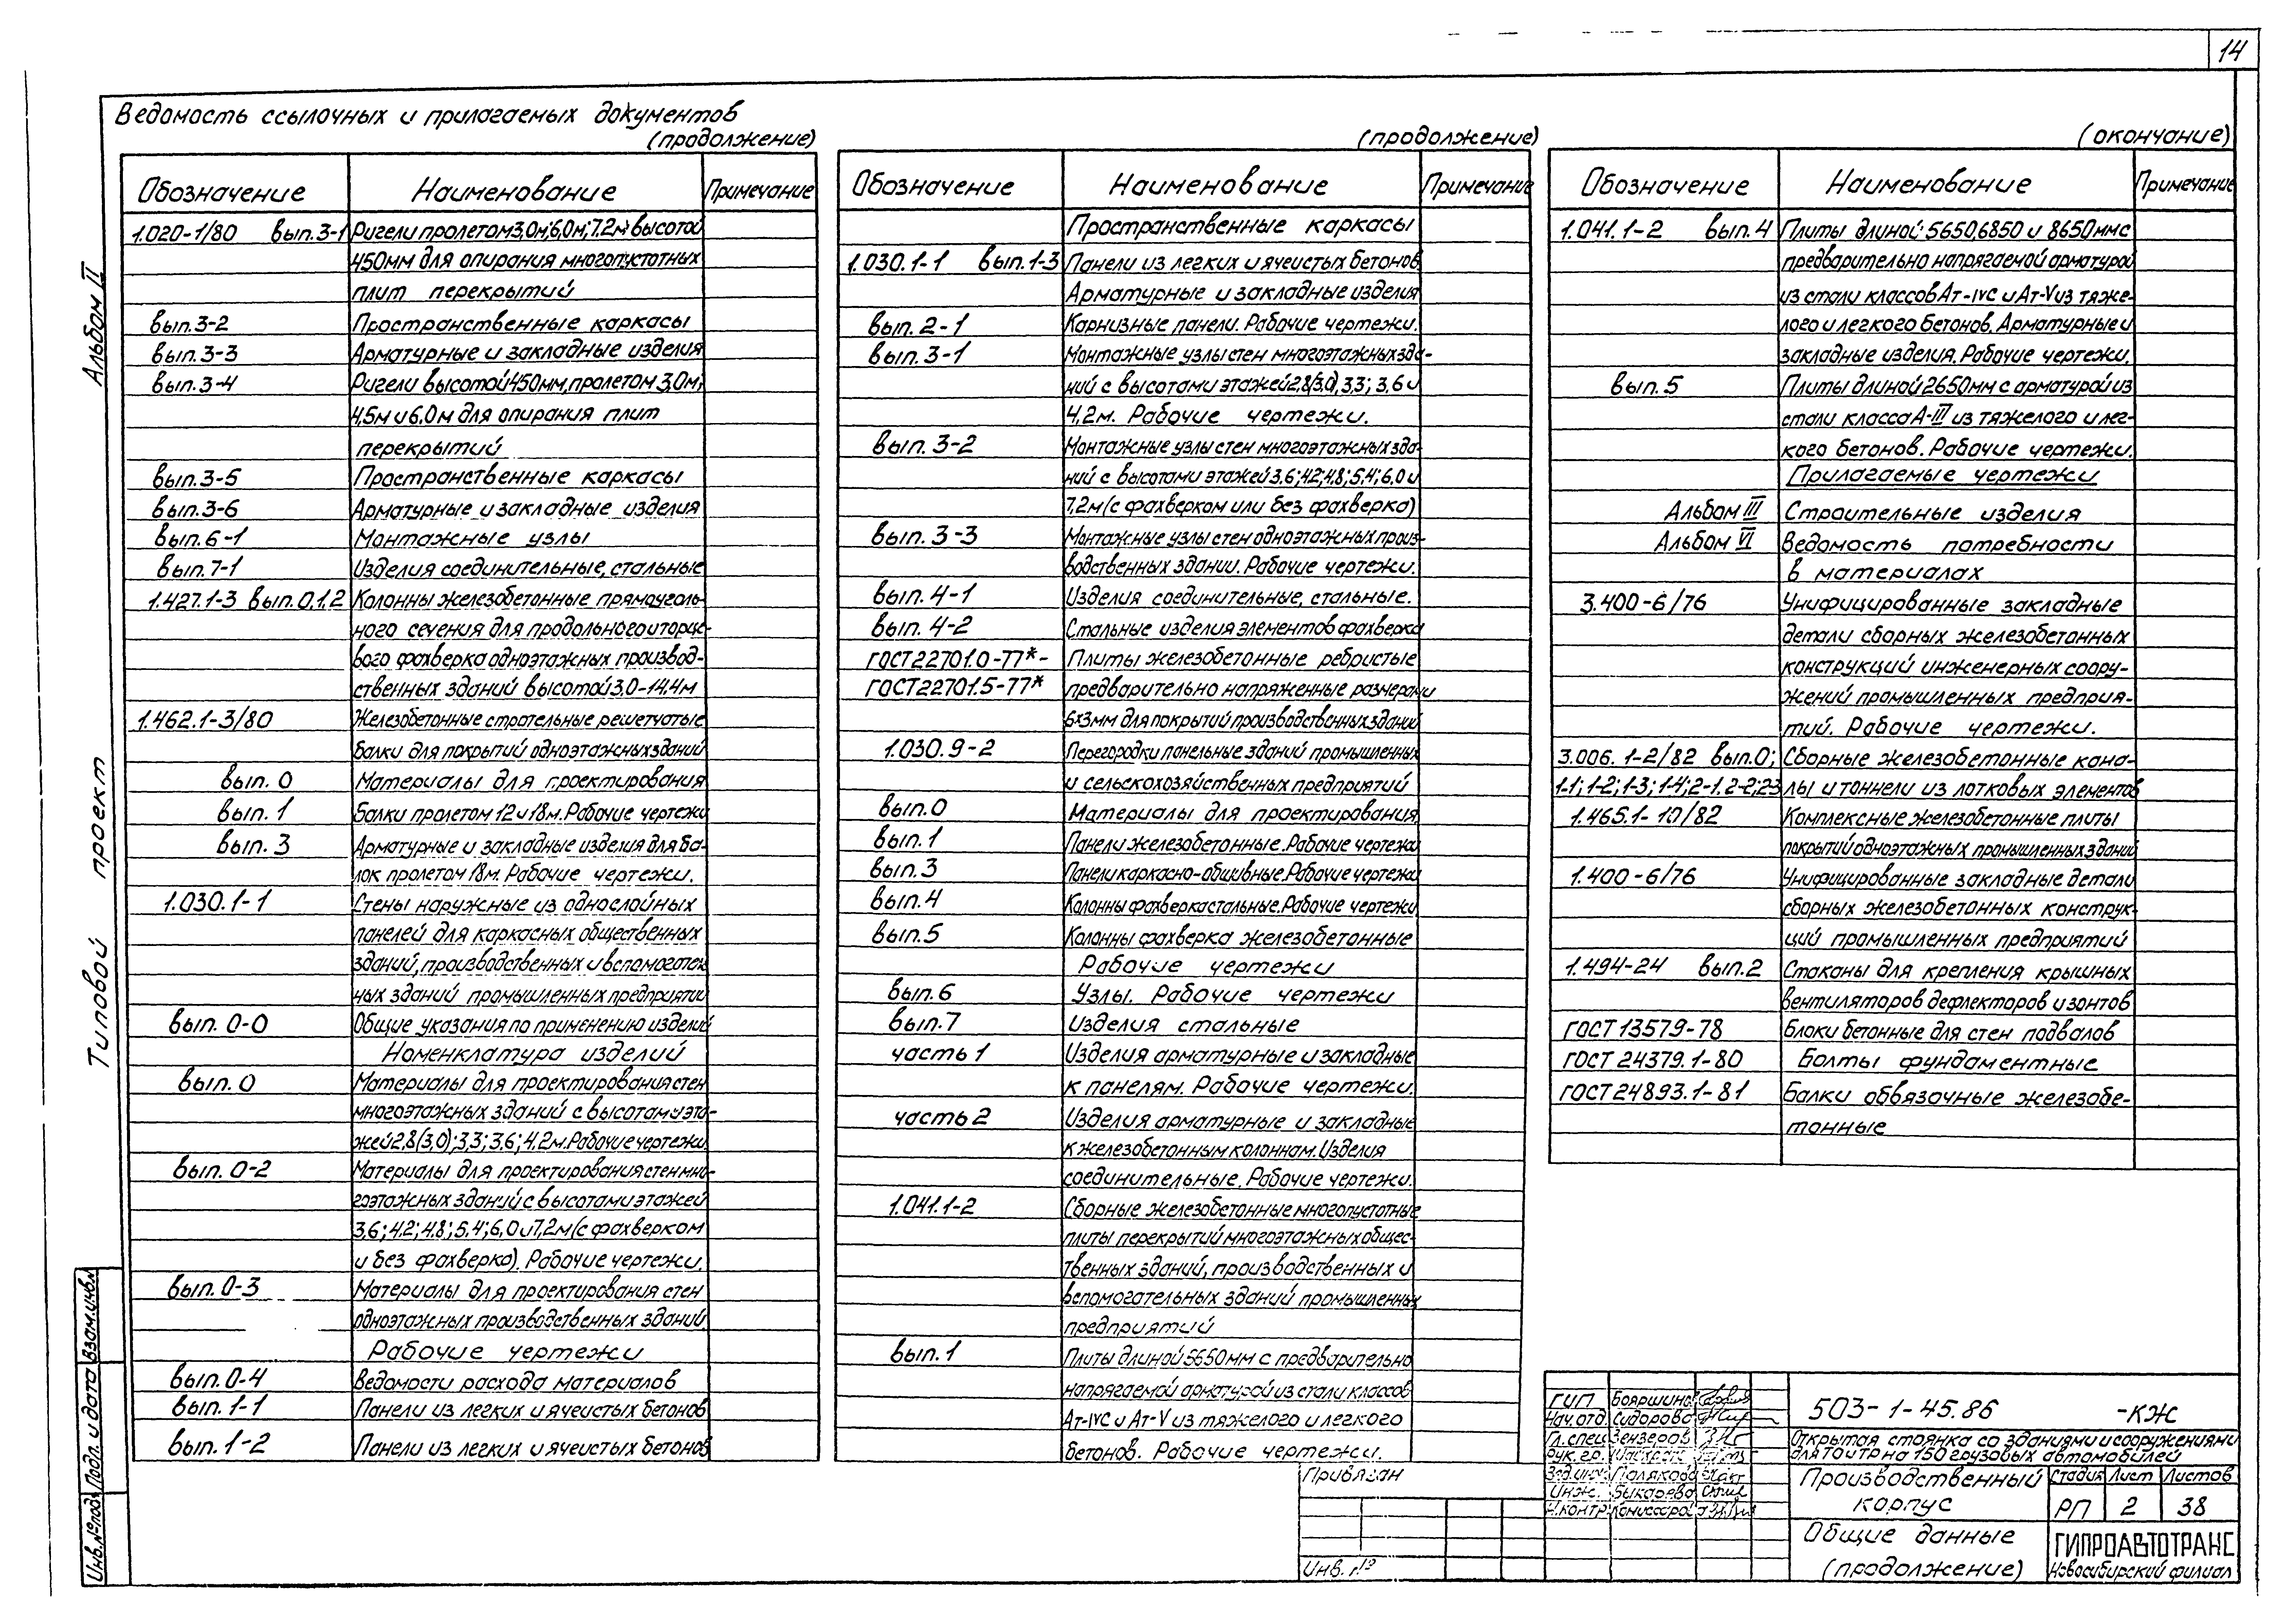 14
Ведомость ссылочных и прилагаемых документов
(продолжение)
Обозначение Наименование Примечание
1.020-1/80 вып.3-1 Ригели пролетом 3,0м; 6,0м; 7,2м высотой
450мм для опирания многопустотных
плит перекрытий
вып.3-2 Пространственные каркасы
вып.3-3 Арматурные и закладные изделия
вып.3-4 Ригели высотой 450мм, пролетом 3,0м,
4,5м и 6,0м для опирания плит
перекрытий
вып.3-5 Пространственные каркасы
вып.3-6 Арматурные и закладные изделия
вып.6-1 Монтажные узлы
вып.7-1 Изделия соединительные, стальные
1.427.1-3 вып.0,1,2 Колонны железобетонные прямоуголь-
ного сечения для продольного и торце-
вого фахверка одноэтажных производ-
ственных зданий высотой 3,0-14,4м
1.462.1-3/80 Железобетонные стропильные решетчатые
балки для покрытий одноэтажных зданий
вып. 0 Материалы для проектирования
вып. 1 Балки пролетом 12 и 18м. Рабочие чертежи
вып. 3 Арматурные и закладные изделия для ба-
лок пролетом 18м. Рабочие чертежи.
1.030.1-1 Стены наружные из однослойных
панелей для каркасных общественных
зданий, производственных и вспомогатель
ных зданий промышленных предприятий
вып. 0-0 Общие указания по применению изделий
Номенклатура изделий
вып. 0 Материалы для проектирования стен
многоэтажных зданий с высотами эта-
жей 2,8(3,0); 3,3; 3,6; 4,2м. Рабочие чертежи.
вып. 0-2 Материалы для проектирования стен мно-
гоэтажных зданий с высотами этажей
3,6; 4,2; 4,8; 5,4; 6,0 и 7,2м (с фахверком
и без фахверка). Рабочие чертежи.
вып. 0-3 Материалы для проектирования стен
одноэтажных производственных зданий.
Рабочие чертежи
вып. 0-4 Ведомости расхода материалов
вып. 1-1 Панели из легких и ячеистых бетонов
вып. 1-2 Панели из легких и ячеистых бетонов
(продолжение)
Обозначение Наименование Примечание
Пространственные каркасы
1.030.1-1 вып.1-3 Панели из легких и ячеистых бетонов.
Арматурные и закладные изделия
вып. 2-1 Карнизные панели. Рабочие чертежи.
вып. 3-1 Монтажные узлы стен многоэтажных зда-
ний с высотами этажей 2,8(3,0), 3,3; 3,6 и
4,2м. Рабочие чертежи.
вып. 3-2 Монтажные узлы стен многоэтажных зда-
ний с высотами этажей 3,6; 4,2; 4,8; 5,4; 6,0 и
7,2м (с фахверком или без фахверка)
вып. 3-3 Монтажные узлы стен одноэтажных произ-
водственных здании. Рабочие чертежи.
вып. 4-1 Изделия соединительные, стальные.
вып. 4-2 Стальные изделия элементов фахверка
ГОСТ 22701.0-77*- Плиты железобетонные ребристые
ГОСТ 22701.5-77* предварительно напряженные размерами
6х3мм для покрытий производственных зданий
1.030.9-2 Перегородки панельные зданий промышленных
и сельскохозяйственных предприятий
вып.0 Материалы для проектирования,
вып.1 Панели железобетонные. Рабочие чертежи
вып.3 Панели каркасно-обшивные. Рабочие чертежи
вып.4 Колонны фахверка стальные. Рабочие чертежи
вып.5 Колонны фахверка железобетонные
Рабочие чертежи
вып.6 Узлы. Рабочие чертежи
вып.7 Изделия стальные
часть 1 Изделия арматурные и закладные
к панелям. Рабочие чертежи.
часть 2 Изделия арматурные и закладные
к железобетонным колоннам. Изделия
соединительные. Рабочие чертежи.
1.041.1-2 Сборные железобетонные многопустотные
плиты перекрытий многоэтажных общес-
твенных зданий, производственных и
вспомогательных зданий промышленных
предприятий
вып. 1 Плиты длиной 5650мм с предварительно
напрягаемой арматурой из стали классов
Ат-IVC и Ат-V из тяжелого и легкого
бетонов. Рабочие чертежи.
(окончание)
Обозначение Наименование Примечание
1.041.1-2 вып.4 Плиты длиной 5650,6850 и 8650мм с
предварительно напрягаемой арматурой
из стали классов Ат-IVC и Ат-V из тяже-
лого и легкого бетонов. Арматурные и
закладные изделия. Рабочие чертежи.
вып.5 Плиты длиной 2650мм с арматурой из
стали класса А-III из тяжелого и лег-
кого бетонов. Рабочие чертежи.
Прилагаемые чертежи
Альбом III Строительные изделия
Альбом VI Ведомость потребности
в материалах
3.400-6/76 Унифицированные закладные
детали сборных железобетонных
конструкций инженерных соору-
жений промышленных предприя-
тий. Рабочие чертежи.
3.006.1-2/82 вып.0; Сборные железобетонные кана-
1-1; 1-2; 1-3; 1-4; 2-1, 2-2; 2-3 лы и тоннели из лотковых элементов
1.465.1-10/82 Комплексные железобетонные плиты
покрытий одноэтажных промышленных зданий
1.400-6/76 Унифицированные закладные детали
сборных железобетонных конструк-
ций промышленных предприятий
1.494-24 вып.2 Стаканы для крепления крышных
вентиляторов дефлекторов и зонтов
ГОСТ 13579-78 Блоки бетонные для стен подвалов
ГОСТ 24379.1-80 Болты фундаментные
ГОСТ 24893.1-81 Балки обвязочные железобе-
тонные
Альбом II
Типовой проект
Взам.инв.№
Подп. и дата
Инв.№ подл
Привязан
Инв. №
ГИП Бояршинов
Нач.отд. Сидорова
Гл.спец Зензеров
Рук.гр.
Полякова
Инж. Быкарева
Н.контр. Комиссаров
503-1-45.86 -КЖ
Открытая стоянка со зданиями и сооружениями
для ТО и ТР на 150 грузовых автомобилей
Производственный
корпус
Стадия Лист Листов
РП 2 38
Общие данные
(продолжение)
ГИПРОАВТОТРАНС
Новосибирский филиал